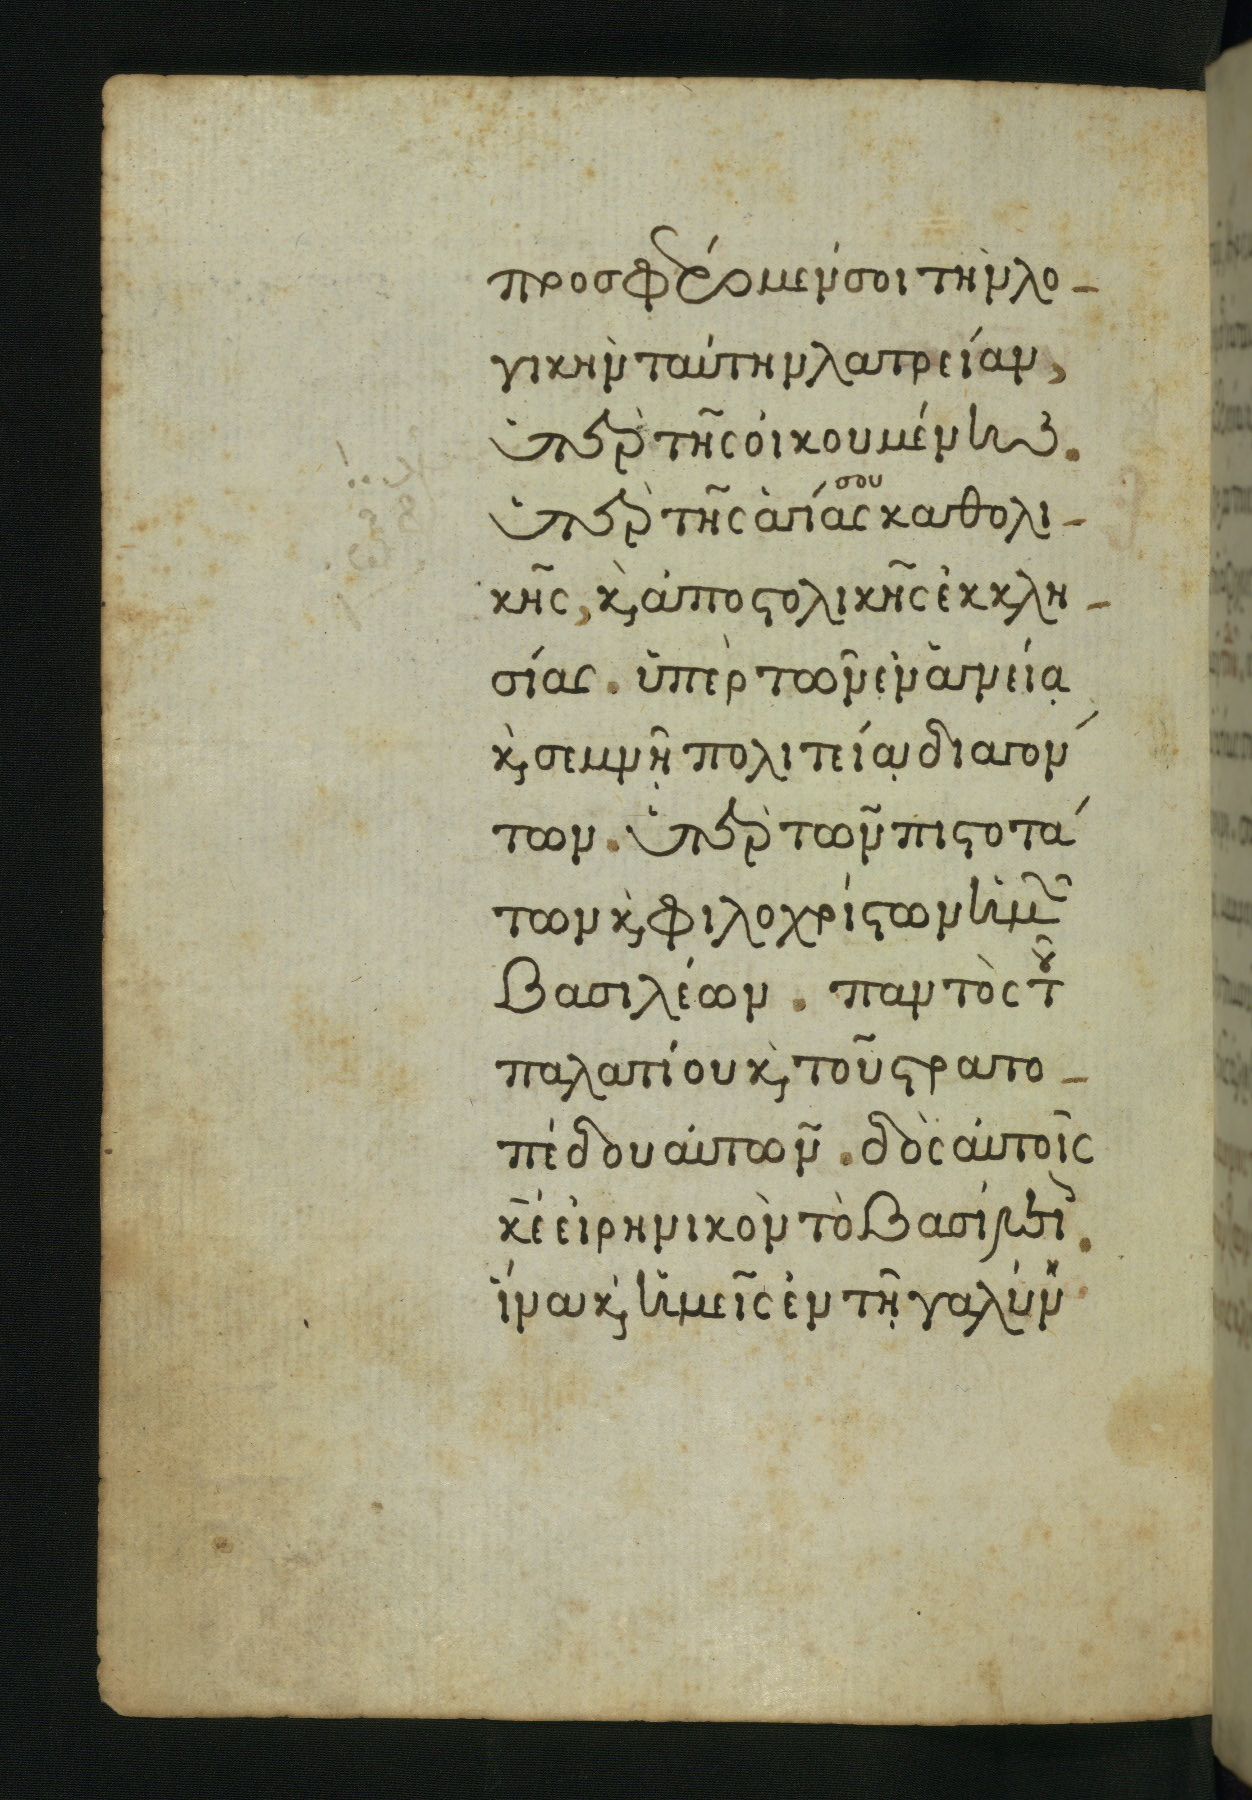 προσφέρομεν σοι τὴν λο-
γικὴν ταύτην λατρείαν,
ὑπὲρ τῆς οἰκουμένης.
ὑπὲρ τῆς ἁγίας σου καθολι-
κῆς, κ̀ ἀποστολικῆς ἐκκλη-
σίας. ὑπὲρ τῶν ἐν ἁγνείᾳ
κ̀ σεμνῇ πολιτείᾳ διαγόν
των. ὑπὲρ τῶν πιστοτά
των κ̀ φιλοχρίστων ἡμῶν
βασιλέων. παντὸς τοῦ
παλατίου κ̀ τοῦ στρατο-
πέδου αὐτῶν. δὸς αὐτοῖς
κ̅ε̅ εἰρηνικὸν τὸ βασίλειον.
ἵνα κ̀ ἡμεῖς ἐν τῇ γαλήνῃ